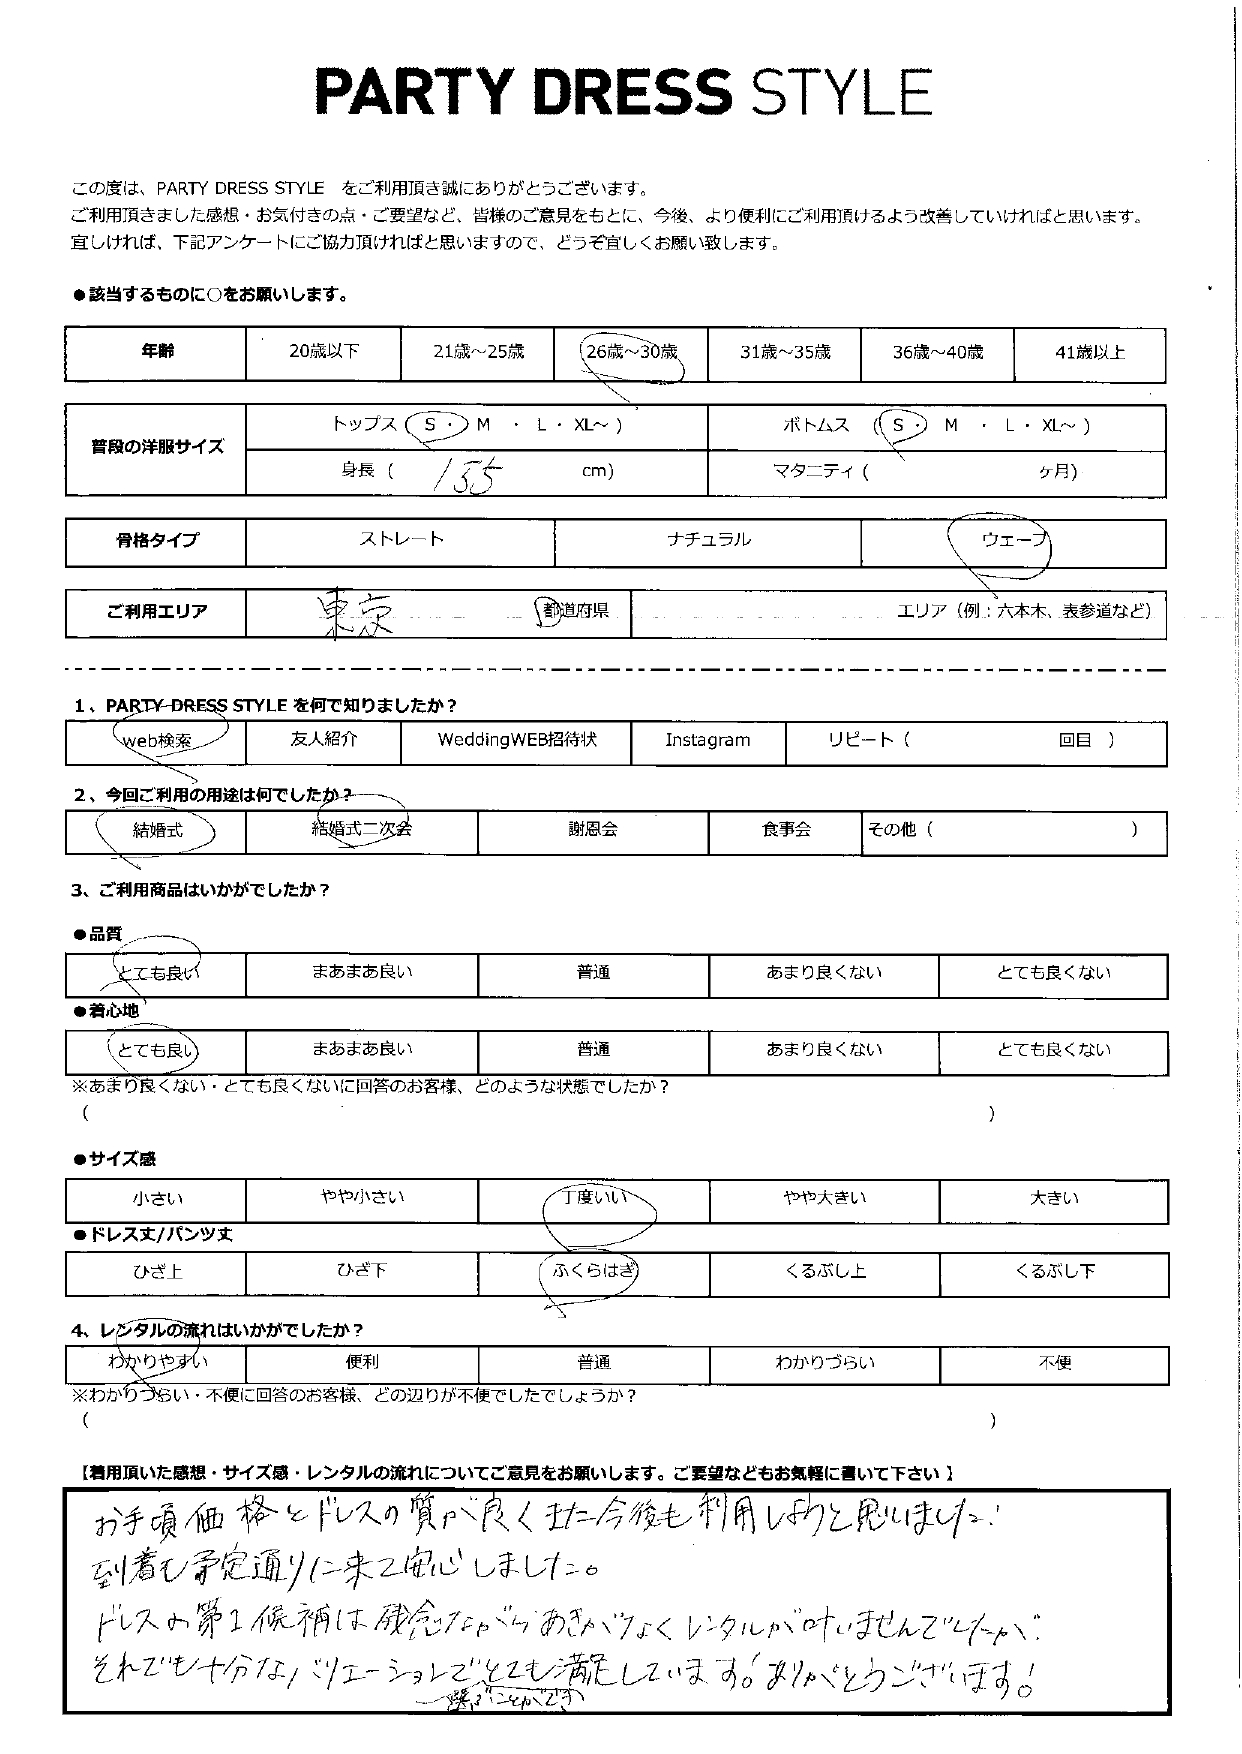 PARTY DRESS STYLE
この度は、PARTY DRESS STYLE をご利用頂き誠にありがとうございます。
ご利用頂きました感想・お気付きの点・ご要望など、皆様のご意見をもとに、今後、より便利にご利用頂けるよう改善していければと思います。
宜しければ、下記アンケートにご協力頂ければと思いますので、どうぞ宜しくお願い致します。
●該当するものに○をお願いします。
年齢 20歳以下 21歳～25歳 26歳～30歳 31歳～35歳 36歳～40歳 41歳以上
普段の洋服サイズ
トップス ( S ・ M ・ L ・ XL～ ) ボトムス ( S ・ M ・ L ・ XL～ )
身長 ( 155 cm) マタニティ ( ヶ月)
骨格タイプ ストレート ナチュラル ウェーブ
ご利用エリア 東京 都道府県 エリア（例：六本木、表参道など）
1、PARTY DRESS STYLE を何で知りましたか？
web検索 友人紹介 WeddingWEB招待状 Instagram リピート ( 回目 )
2、今回ご利用の用途は何でしたか？
結婚式 結婚式二次会 謝恩会 食事会 その他 ( )
3、ご利用商品はいかがでしたか？
●品質
とても良い まあまあ良い 普通 あまり良くない とても良くない
●着心地
とても良い まあまあ良い 普通 あまり良くない とても良くない
※あまり良くない・とても良くないに回答のお客様、どのような状態でしたか？
( )
●サイズ感
小さい やや小さい 丁度いい やや大きい 大きい
●ドレス丈/パンツ丈
ひざ上 ひざ下 ふくらはぎ くるぶし上 くるぶし下
4、レンタルの流れはいかがでしたか？
わかりやすい 便利 普通 わかりづらい 不便
※わかりづらい・不便に回答のお客様、どの辺りが不便でしたでしょうか？
( )
【着用頂いた感想・サイズ感・レンタルの流れについてご意見をお願いします。ご要望などもお気軽に書いて下さい】
お手頃価格とドレスの質が良くまた今後も利用しようと思いました！
到着も予定通りに来て安心しました。
ドレスの第1候補は残念ながらあきがなくレンタルが叶いませんでしたが、
それでも十分なバリエーションでとても満足しています！ありがとうございます！
選ぶことができ